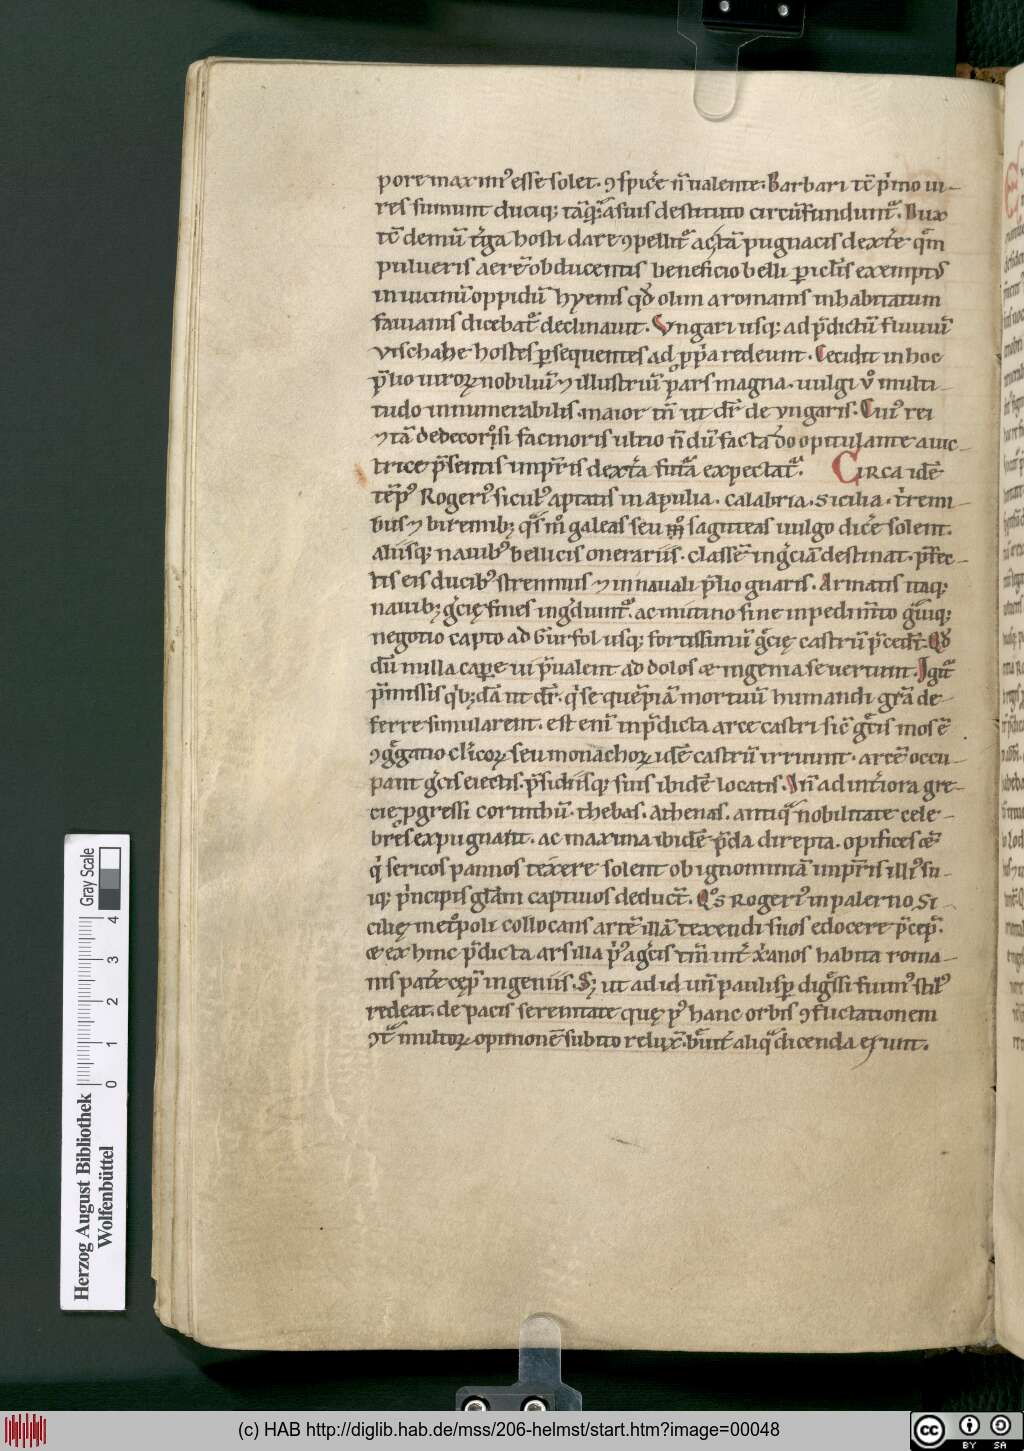 pore maxim᷒ esse solet. ꝯspiċe n̄ ualente. Barbari tc̄ p̍mo ui-
res sumunt ducıq; tāq̄ a suis destituto circūfundunt̃. Dux
tc̄ demū t̃ga hosti dare ꝯpellit̃ actā pugnacis dext̃e qͣm
pulueris aerē obducentis beneficio belli ꝑiclis exempt᷒
in uicinū oppidū hyenis qd̄ olim a romanis inhabitatum
fauianis dicebat̃ declinauit. Vngari usq; ad p̄dictū fluuiū
vischahe hostes ꝑsequentes ad ꝓpͥa redeunt. Cecidit in hoc
p̄lio uiroꝝ nobiliū ⁊ illustriū pars magna. uulgi ů multi-
tudo innumerabilis. maior tn̄ ut dr̄ de yngaris. Cui᷒ rei
⁊ tā dedecorosi facinoris ultio n̄dū facta do opitulante a uic-
trice p̄sentis imp̄ris dext̃a futa expectat̃. Circa idē
tēp᷒ Roger᷒ sicul᷒ aptatis in apulia. calabria. sicilia. t̍remi-
bus ⁊ biremib; qͣs m̊ galeas seu sagitteas uulgo dic̄e solent.
aliisq; nauib᷒ bellicis onerariis. classē in gͤciā destinat. p̄fec-
tis eis ducib᷒ strennuis ⁊ in nauali p̄lio gnaris. Armatis itaq;
nauib; gͤcię fines ingͤdiunt̃. ac mutino sine inpedim̄to gͣuiq;
negotio capto ad Gurfol usq; fortissimū gͤcię castrū p̄cedt̄. Qd̄
dū nulla capere ui p̄ualent ad dolos æ ingenia se uerterunt. Igit̃
p̄missis qͥb;dā ut dr̄. qͥ se quēpiā mortuū humandi gr̄a de-
ferre simularent. est enī in p̄dicta arce castri sic̄ gͤcis mos ē
ꝯgͤgatio clͥicoꝝ seu monachoꝝ idē castrū irruunt. arcē occu-
pant gͤcis eiectis. p̄sidiisq; suis ibidē locatis. In̄ ad int̍iora gre-
cię ꝓgressi corinthū. thebas. Athenas. antiqͣ nobilitate cele-
bres expugnant. ac maxima ibidē p̄da direpta. opifices æ̃
qͥ sericos pannos texere solent ob ignominiā imp̄ris illi᷒ su-
iq; pͥncipis gl̄am captiuos deduc̄t. Qͦs Roger᷒ in palerno Si-
cilię met̊poli collocans artē illā texendi suos edocere p̄cep̄.
æ exhinc p̄dicta ars illa pͥ᷒ a gͤcis tm̄ int̃ xͥanos habita roma-
nis pat̍e cęp̄ ingeniis. S; ut ad id un̄ paulisꝑ digͤssi fuim᷒ stil᷒
redeat. de pacis serenitate quę p᷒ hanc orbis ꝯfluctationem
ꝯtͣ multoꝝ opinionē subito relux̄. breuit̃ aliqͣ dicenda erunt.
Herzog August Bibliothek
Wolfenbüttel
Gray Scale
0 1 2 3 4
(c) HAB http://diglib.hab.de/mss/206-helmst/start.htm?image=00048
cc BY SA